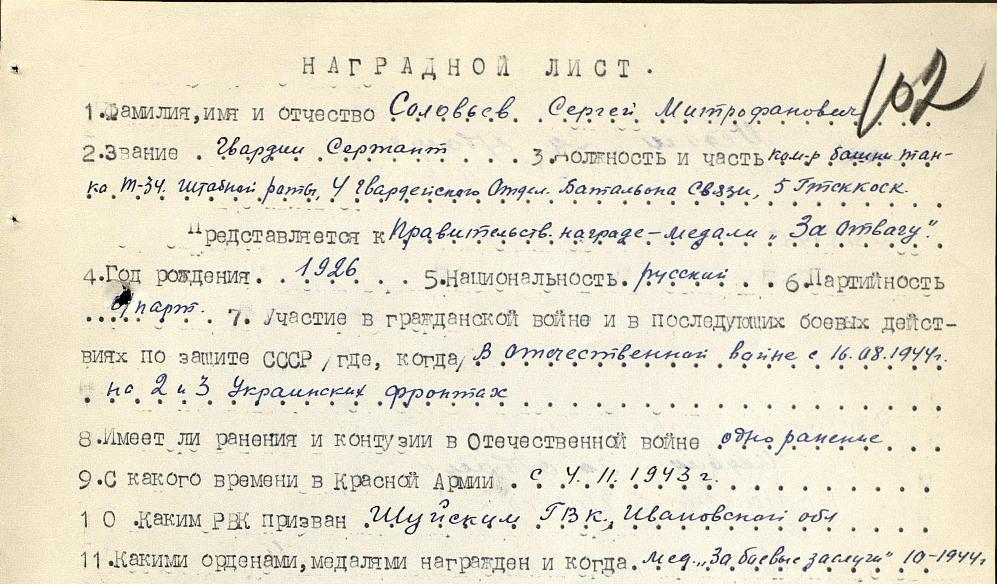 НАГРАДНОЙ ЛИСТ.
102
1.Фамилия,имя и отчество Соловьев Сергей Митрофанович
2.Звание Гвардии Сержант 3.Должность и часть ком-р башни тан-
ка Т-34. Штабной роты, 4 Гвардейского Отдел. Батальона Связи, 5 Гтсккоск.
Представляется к Правительств. награде - медали „За Отвагу".
4.Год рождения. 1926 5.Национальность. русский 6.Партийность
б/парт. 7. Участие в гражданской войне и в последующих боевых дейст-
виях по защите СССР /где, когда/ В Отечественной войне с 16.08.1944г.
на 2 и 3 Украинских фронтах
8.Имеет ли ранения и контузии в Отечественной войне одно ранение
9.С какого времени в Красной Армии . с 4.11.1943 г.
10 .Каким РВК призван Шуйским ГВК, Ивановской обл
11.Какими орденами,медалями награжден и когда. мед. „За боевые заслуги" 10-1944г